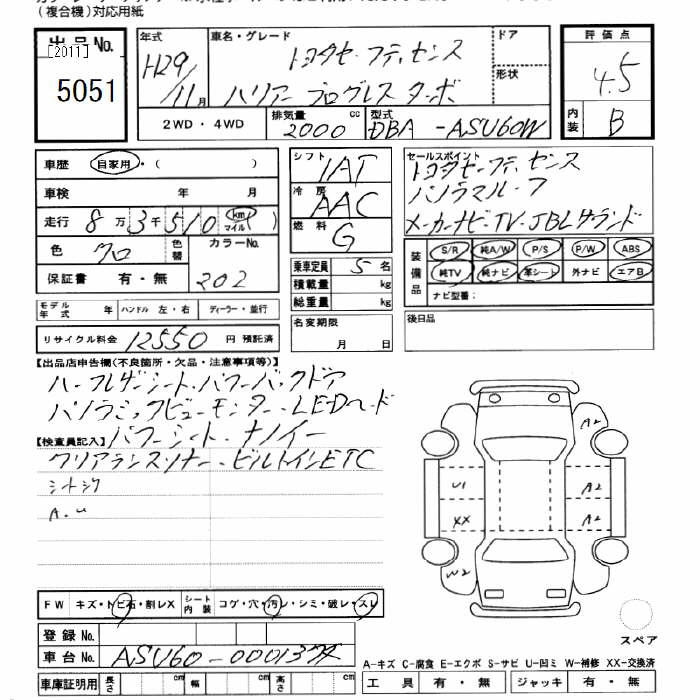 (複合機)対応用紙
出品No.
[2011]
5051
年式 H29 / 11月
車名・グレード トヨタセーフティセンス
ハリアー プログレス ターボ
ドア
形状
評価点 4.5
内装 B
2WD・4WD
排気量 2000 cc
型式 DBA-ASU60W
車歴 自家用・( )
車検 年 月
走行 8万3千510 km マイル
色 クロ 色替 カラーNo. 202
保証書 有・無
モデル年式 年 ハンドル 左・右 ディーラー・並行
リサイクル料金 12550 円 預託済
シフト IAT
冷房 AAC
燃料 G
乗車定員 5名
積載量 kg
総重量 kg
名変期限 月 日
セールスポイント
トヨタセーフティセンス
パノラマルーフ
メーカーナビ・TV・JBLサウンド
装備品 S/R 純A/W P/S P/W ABS
純TV 純ナビ 革シート 外ナビ エアB
ナビ型番:
後日品
【出品店申告欄(不良箇所・欠品・注意事項等)】
ハーフレザーシート・パワーバックドア
パノラミックビューモニター・LEDヘッド
パワーシート・ナノイー
【検査員記入】
クリアランスソナー・ビルトインETC
シートシワ
A.U
A2
U1 A2
XX A2
W2
スペア
FW キズ・トビ石・割レX シート内装 コゲ・穴・汚レ・シミ・破レ・スレ
登録No.
車台No. ASU60-00013
車庫証明用 長さ cm 幅 cm 高さ cm
A-キズ C-腐食 E-エクボ S-サビ U-凹ミ W-補修 XX-交換済
工具 有・無 ジャッキ 有・無